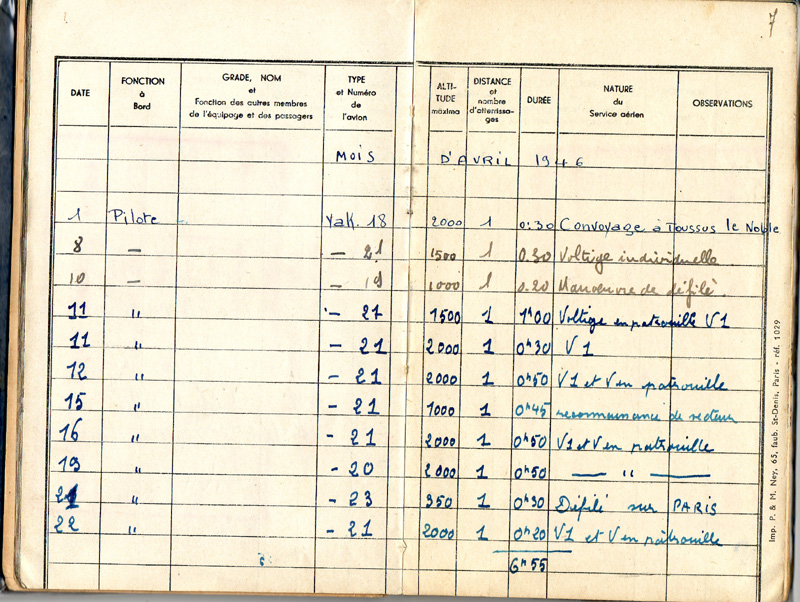 7
DATE FONCTION à Bord GRADE, NOM et Fonction des autres membres de l'équipage et des passagers TYPE et Numéro de l'avion ALTI- TUDE maxima DISTANCE et nombre d'atterrissa- ges DURÉE NATURE du Service aérien OBSERVATIONS
MOIS D'AVRIL 1946
1 Pilote Yak. 18 2000 1 0:30 Convoyage à Toussus le Noble
8 — — 21 1500 1 0.30 Voltige individuelle
10 — — 19 1000 1 0.20 Manœuvre de défilé.
11 " — 21 1500 1 1h00 Voltige en patrouille V1
11 " — 21 2000 1 0h30 V1
12 " — 21 2000 1 0h50 V1 et V en patrouille
15 " — 21 1000 1 0h45 reconnaissance de secteur
16 " — 21 2000 1 0h50 V1 et V en patrouille
19 " — 20 2000 1 0h50 — " —
21 " — 23 350 1 0h30 Défilé sur PARIS
22 " — 21 2000 1 0h20 V1 et V en patrouille
6h55
Imp. P. & M. Ney, 65, faub. St-Denis, Paris - réf. 1029